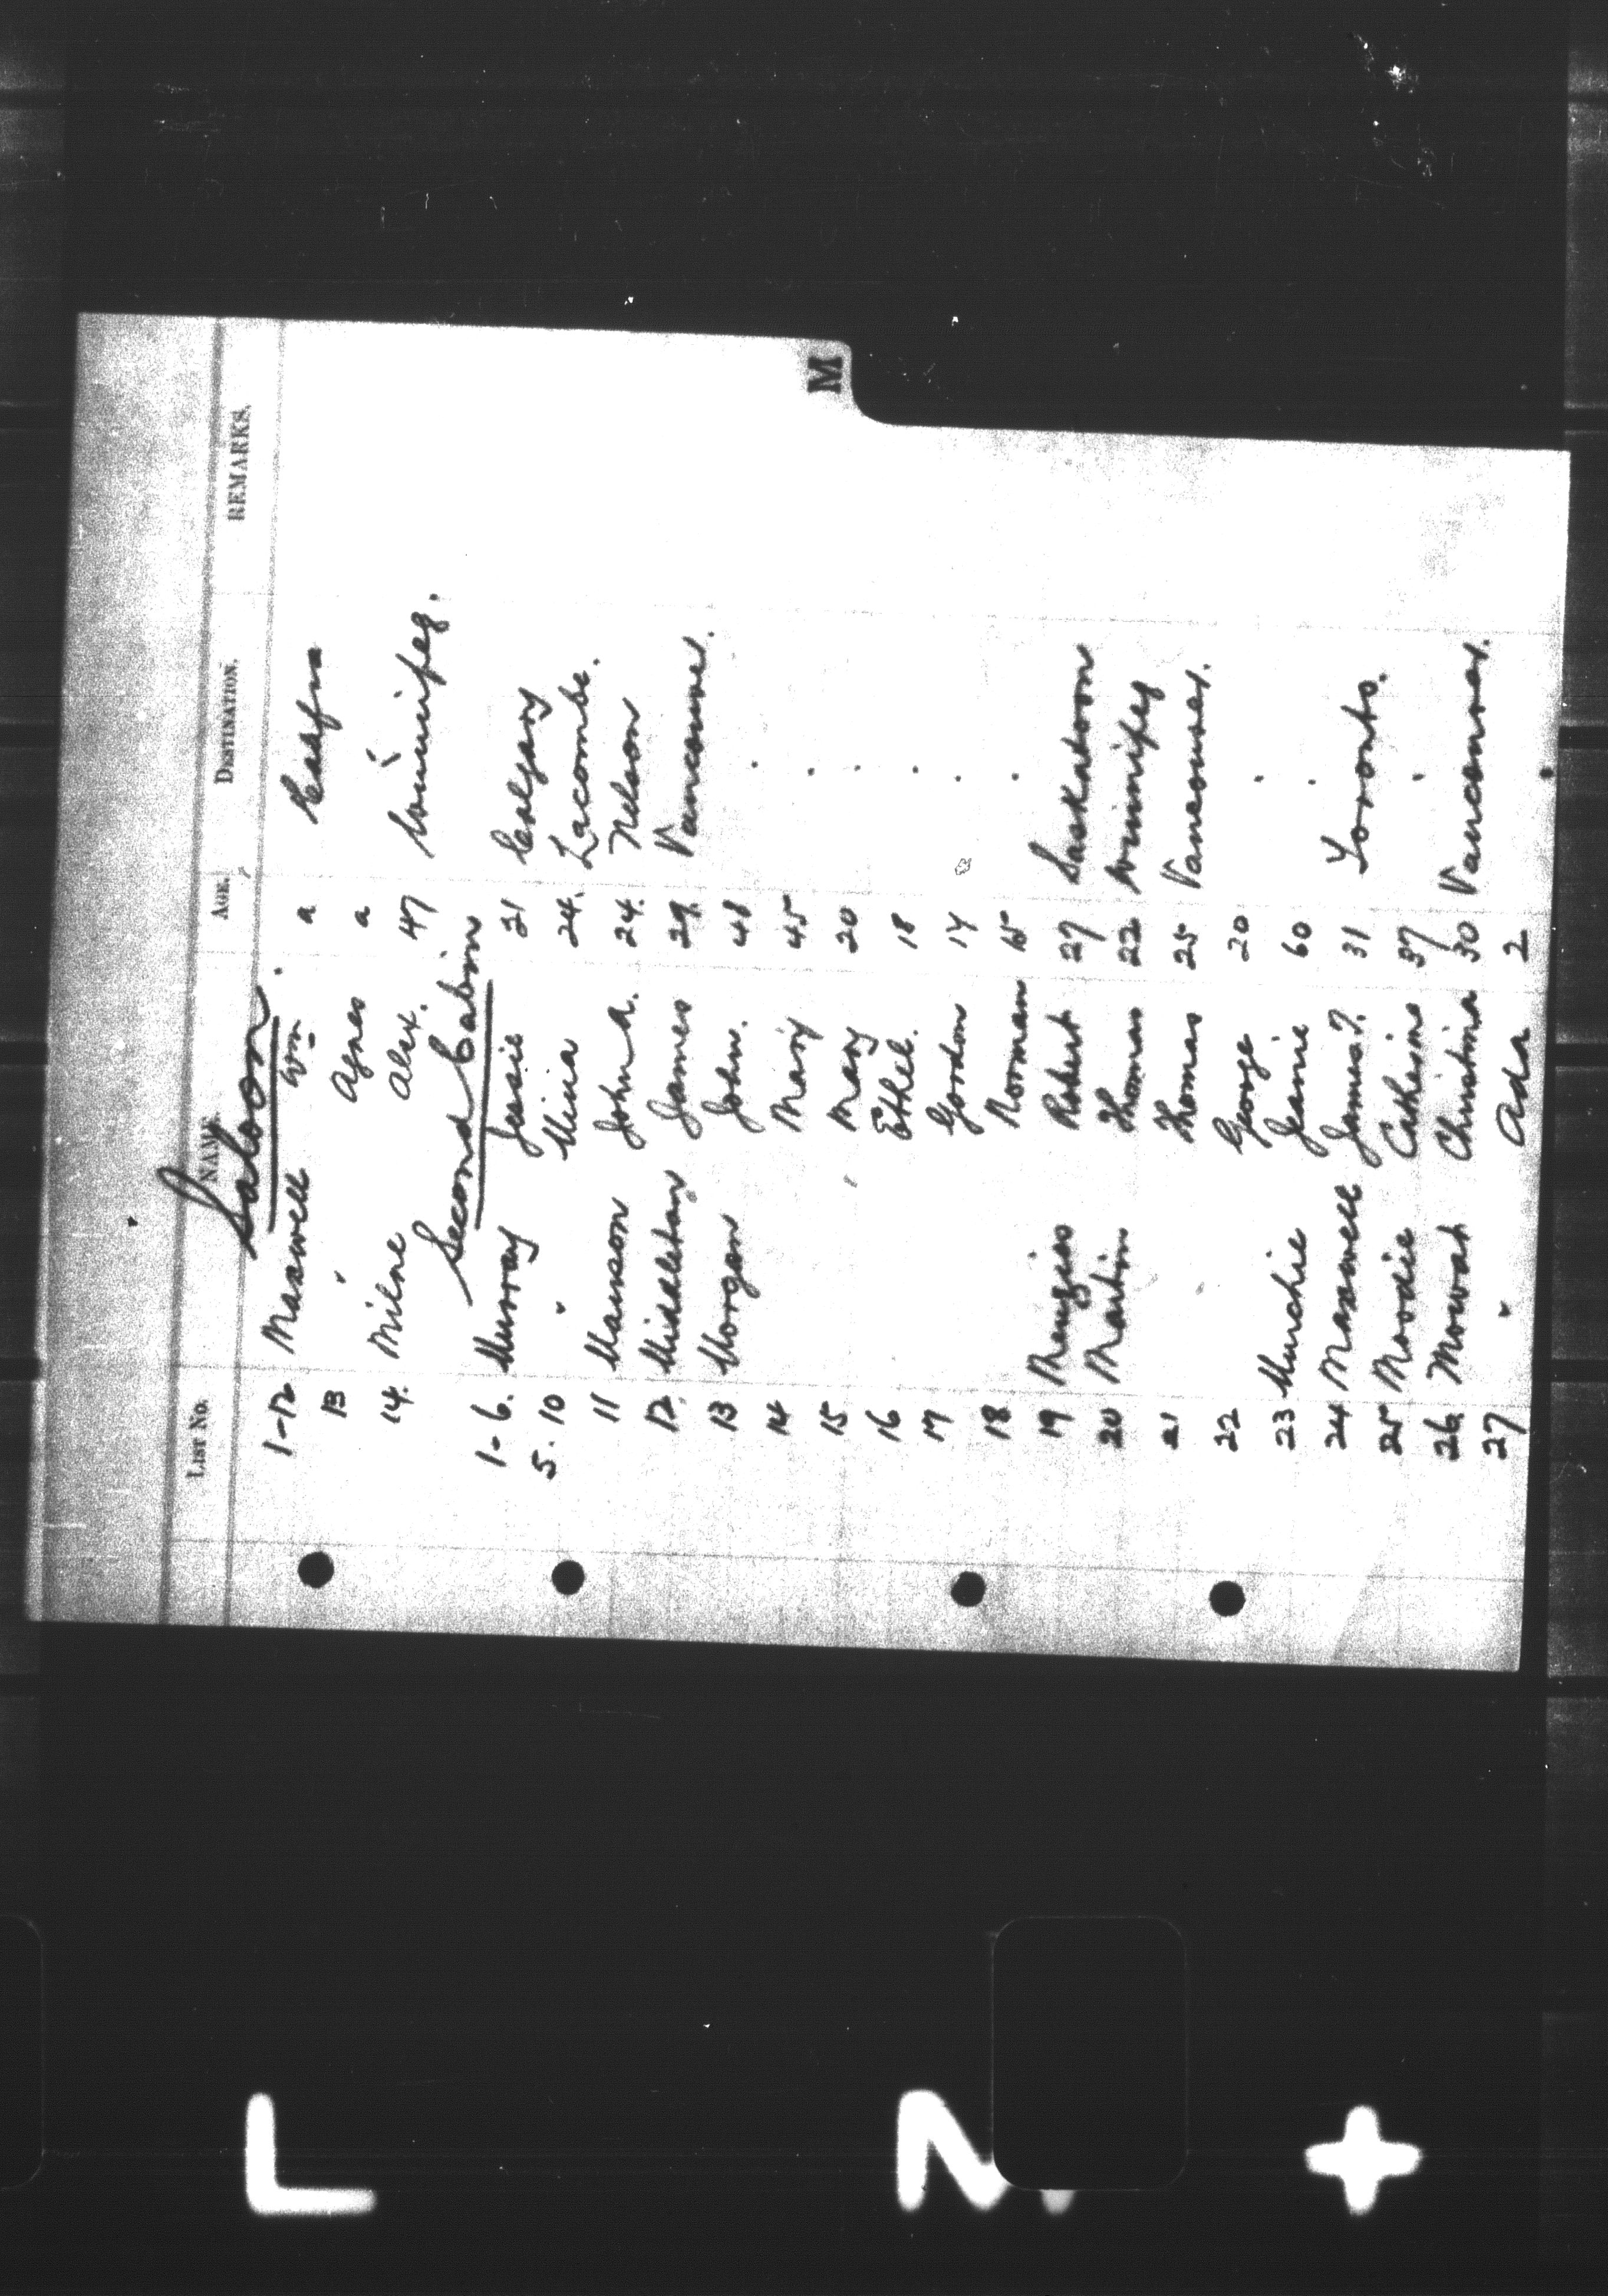 M
LIST No. NAME. AGE. DESTINATION. REMARKS.
Saloon.
1-12 Maxwell Wm a
13 " Agnes a "
14. Milne Alex. 47 Winnipeg.
Second Cabin
1-6. Murray Jessie 21 Calgary
5.10 " Mina 24. Lacombe.
11 Manson John A. 24. Nelson
12. Middleton James 29. Vancouver.
13 Morgan John. 48 "
14 Mary 45 "
15 Mary 20 "
16 Ethel. 18 "
17 Gordon 17 "
18 Norman 15 "
19 Menzies Robert 27 Saskatoon
20 Martin Thomas 22 Winnipeg
21 Thomas 25 Vancouver.
22 George 20 "
23 Murchie Jeanie 60 "
24 Maxwell James ?. 31 Toronto.
25 Moodie Catherine 37 "
26 Mowat Christina 30 Vancouver.
27 " Ada 2 "
L N +